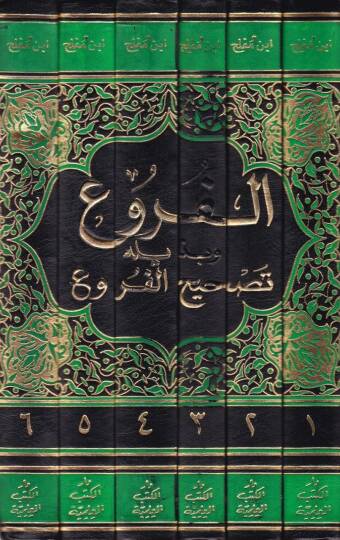 ابن مفلح ابن مفلح ابن مفلح ابن مفلح ابن مفلح ابن مفلح
الفروع
وبذيله
تصحيح الفروع
١ ٢ ٣ ٤ ٥ ٦
دار دار دار دار دار دار
الكتب الكتب الكتب الكتب الكتب الكتب
العلمية العلمية العلمية العلمية العلمية العلمية